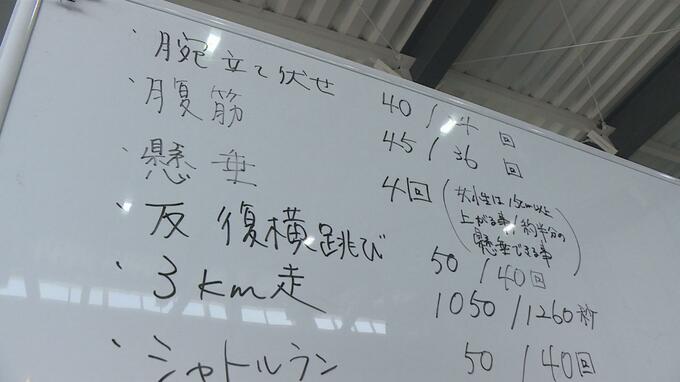 ・腕立て伏せ 40/14回
・腹筋 45/36回
・懸垂 4回(女性は15cm以上
上がる事/約半分の
懸垂できる事)
・反復横跳び 50/40回
・3km走 1050/1260秒
・シャトルラン 50/40回